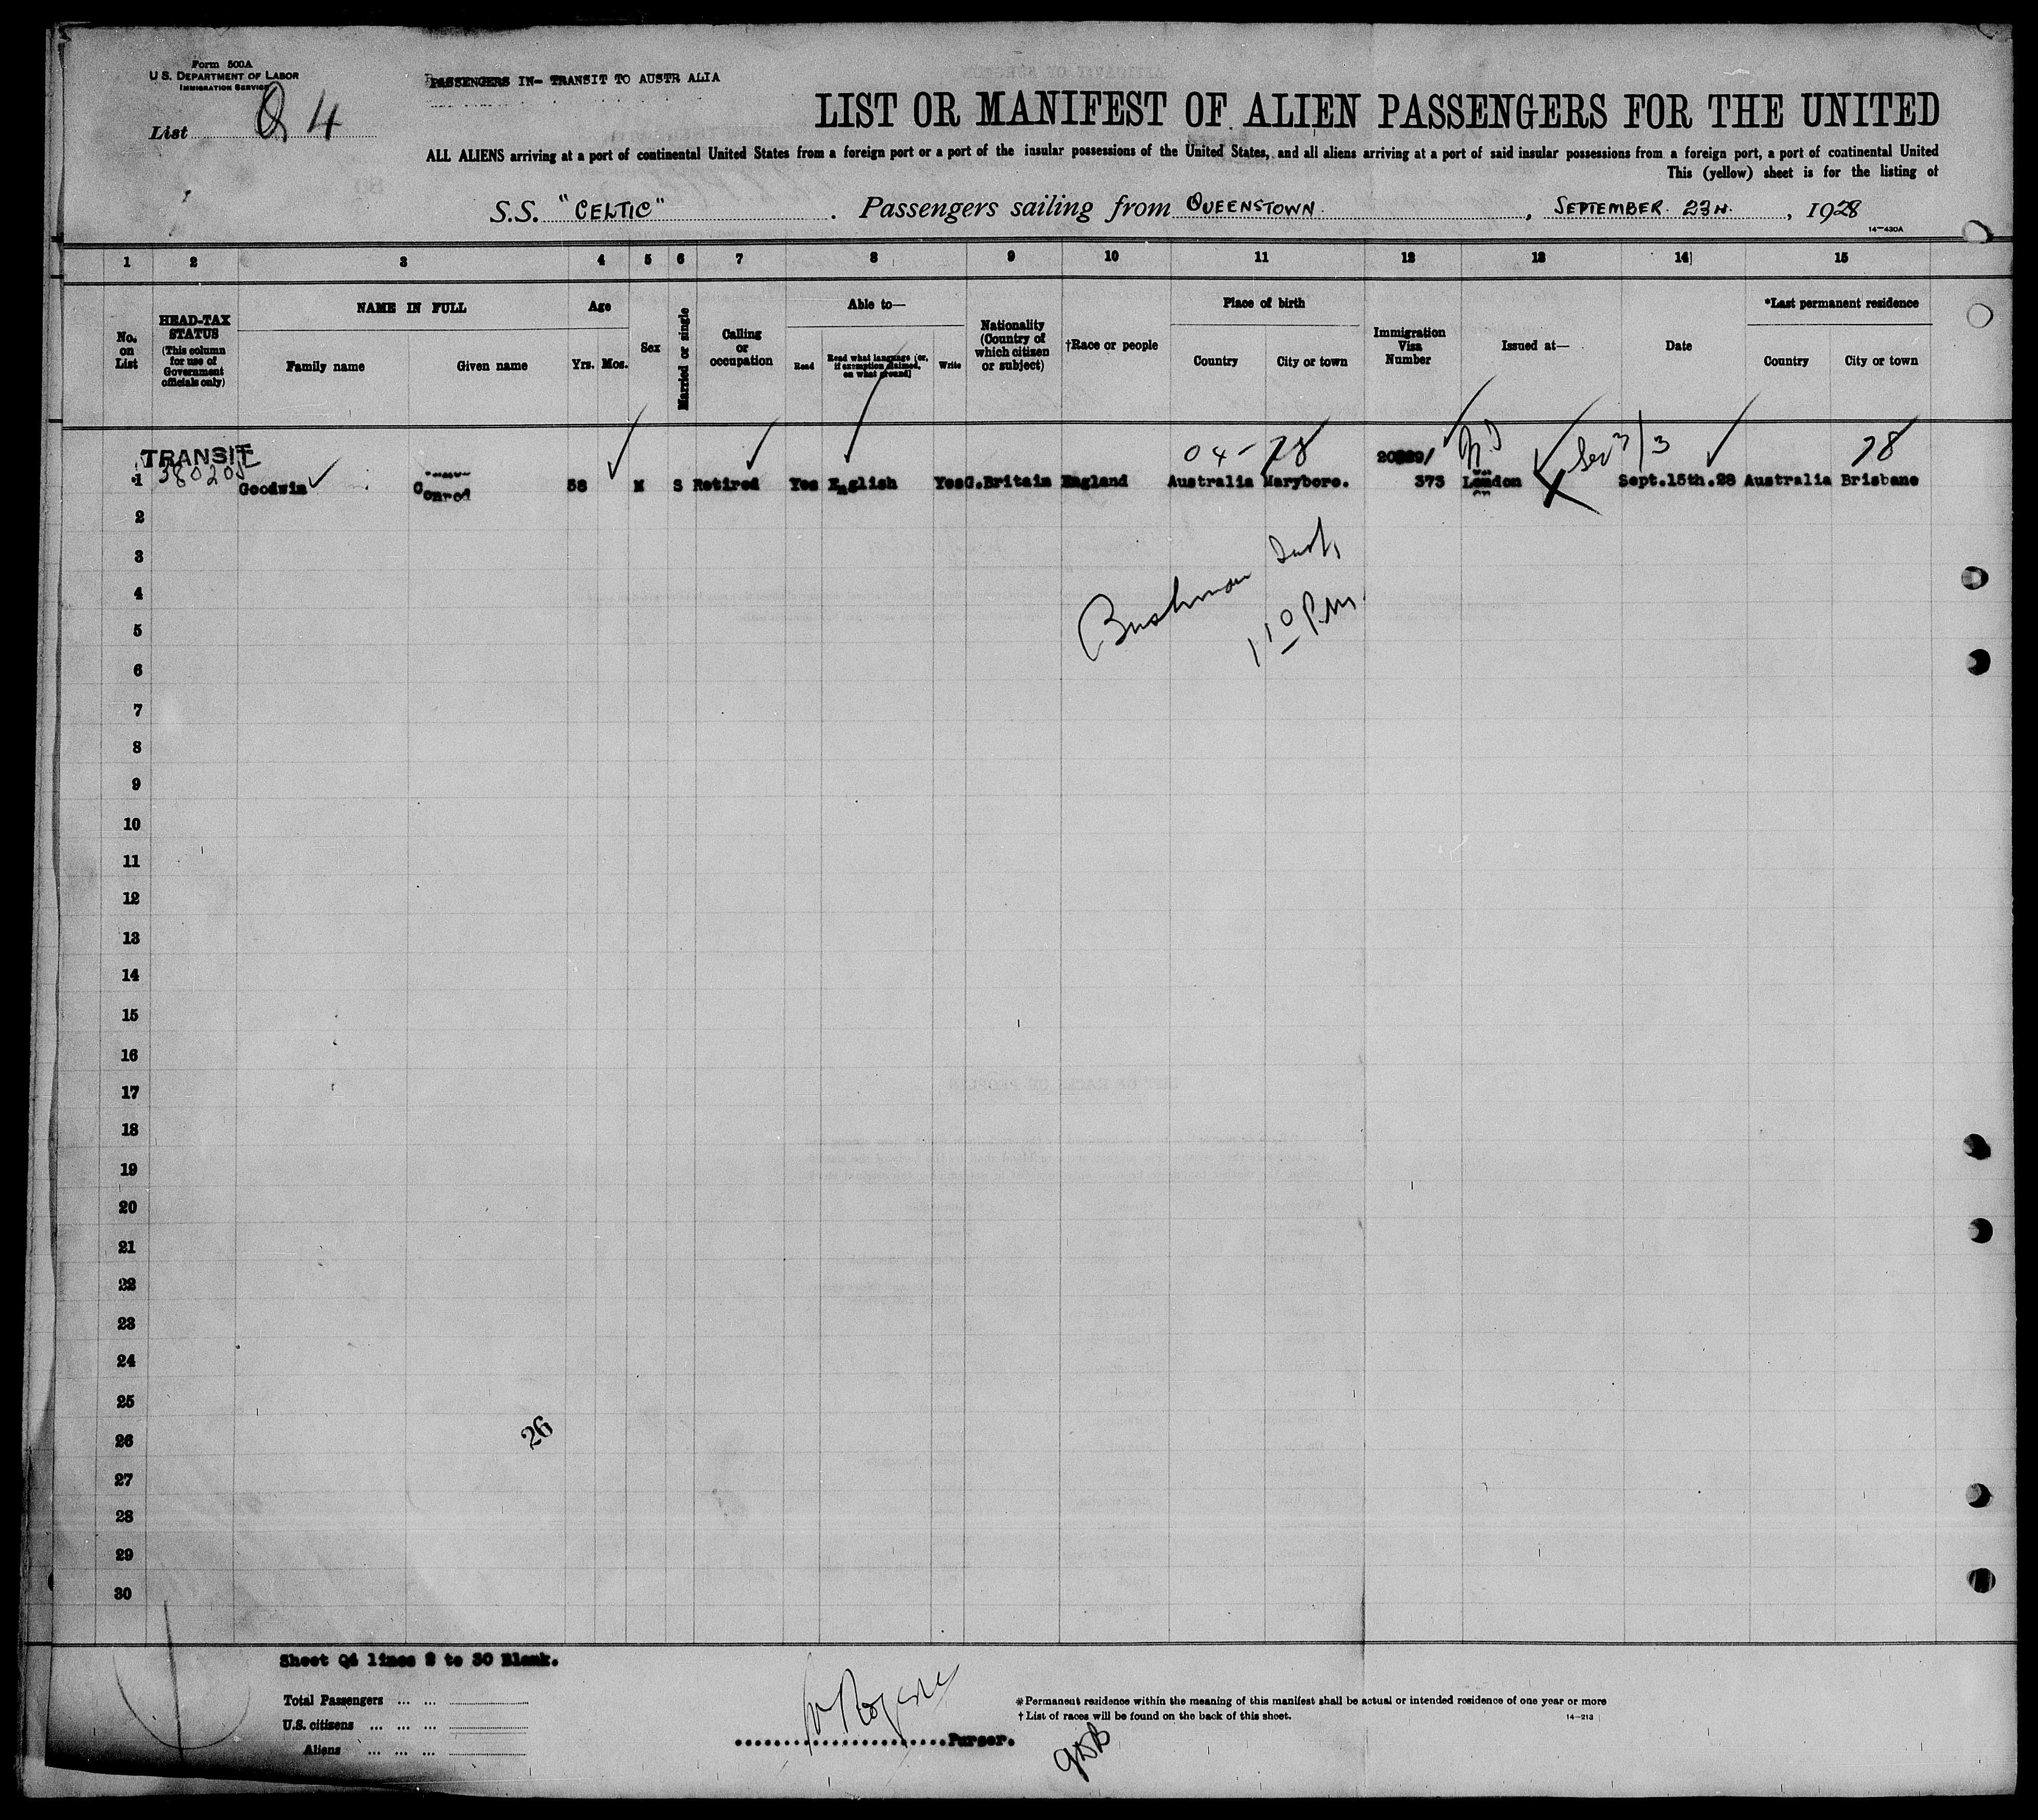 Form 500A
U.S. DEPARTMENT OF LABOR
IMMIGRATION SERVICE
PASSENGERS IN- TRANSIT TO AUSTR ALIA
List Q 4
LIST OR MANIFEST OF ALIEN PASSENGERS FOR THE UNITED
ALL ALIENS arriving at a port of continental United States from a foreign port or a port of the insular possessions of the United States, and all aliens arriving at a port of said insular possessions from a foreign port, a port of continental United
This (yellow) sheet is for the listing of
S.S. "CELTIC". Passengers sailing from QUEENSTOWN, SEPTEMBER 23, 1928
14-430A
1 2 3 4 5 6 7 8 9 10 11 12 13 14 15
No. on List
HEAD-TAX STATUS (This column for use of Government officials only)
NAME IN FULL
Family name Given name
Age
Yrs. Mos.
Sex
Married or single
Calling or occupation
Able to—
Read
Read what language [or, if exemption claimed, on what ground]
Write
Nationality (Country of which citizen or subject)
†Race or people
Place of birth
Country City or town
Immigration Visa Number
Issued at—
Date
*Last permanent residence
Country City or town
TRANSIT
04 - 78
78
1 Goodwin Conrod 58 M S Retired Yes English Yes G.Britain England Australia Maryboro. 373 London Sept.15th.28 Australia Brisbane
2
3
4
5
Bushman
1 10 P.M.
6
7
8
9
10
11
12
13
14
15
16
17
18
19
20
21
22
23
24
25
26
26
27
28
29
30
Sheet Q4 lines 2 to 30 Blank.
Total Passengers ... ...
U.S. citizens ... ... ...
Aliens ... ... ...
Purser.
*Permanent residence within the meaning of this manifest shall be actual or intended residence of one year or more
† List of races will be found on the back of this sheet.
14-213